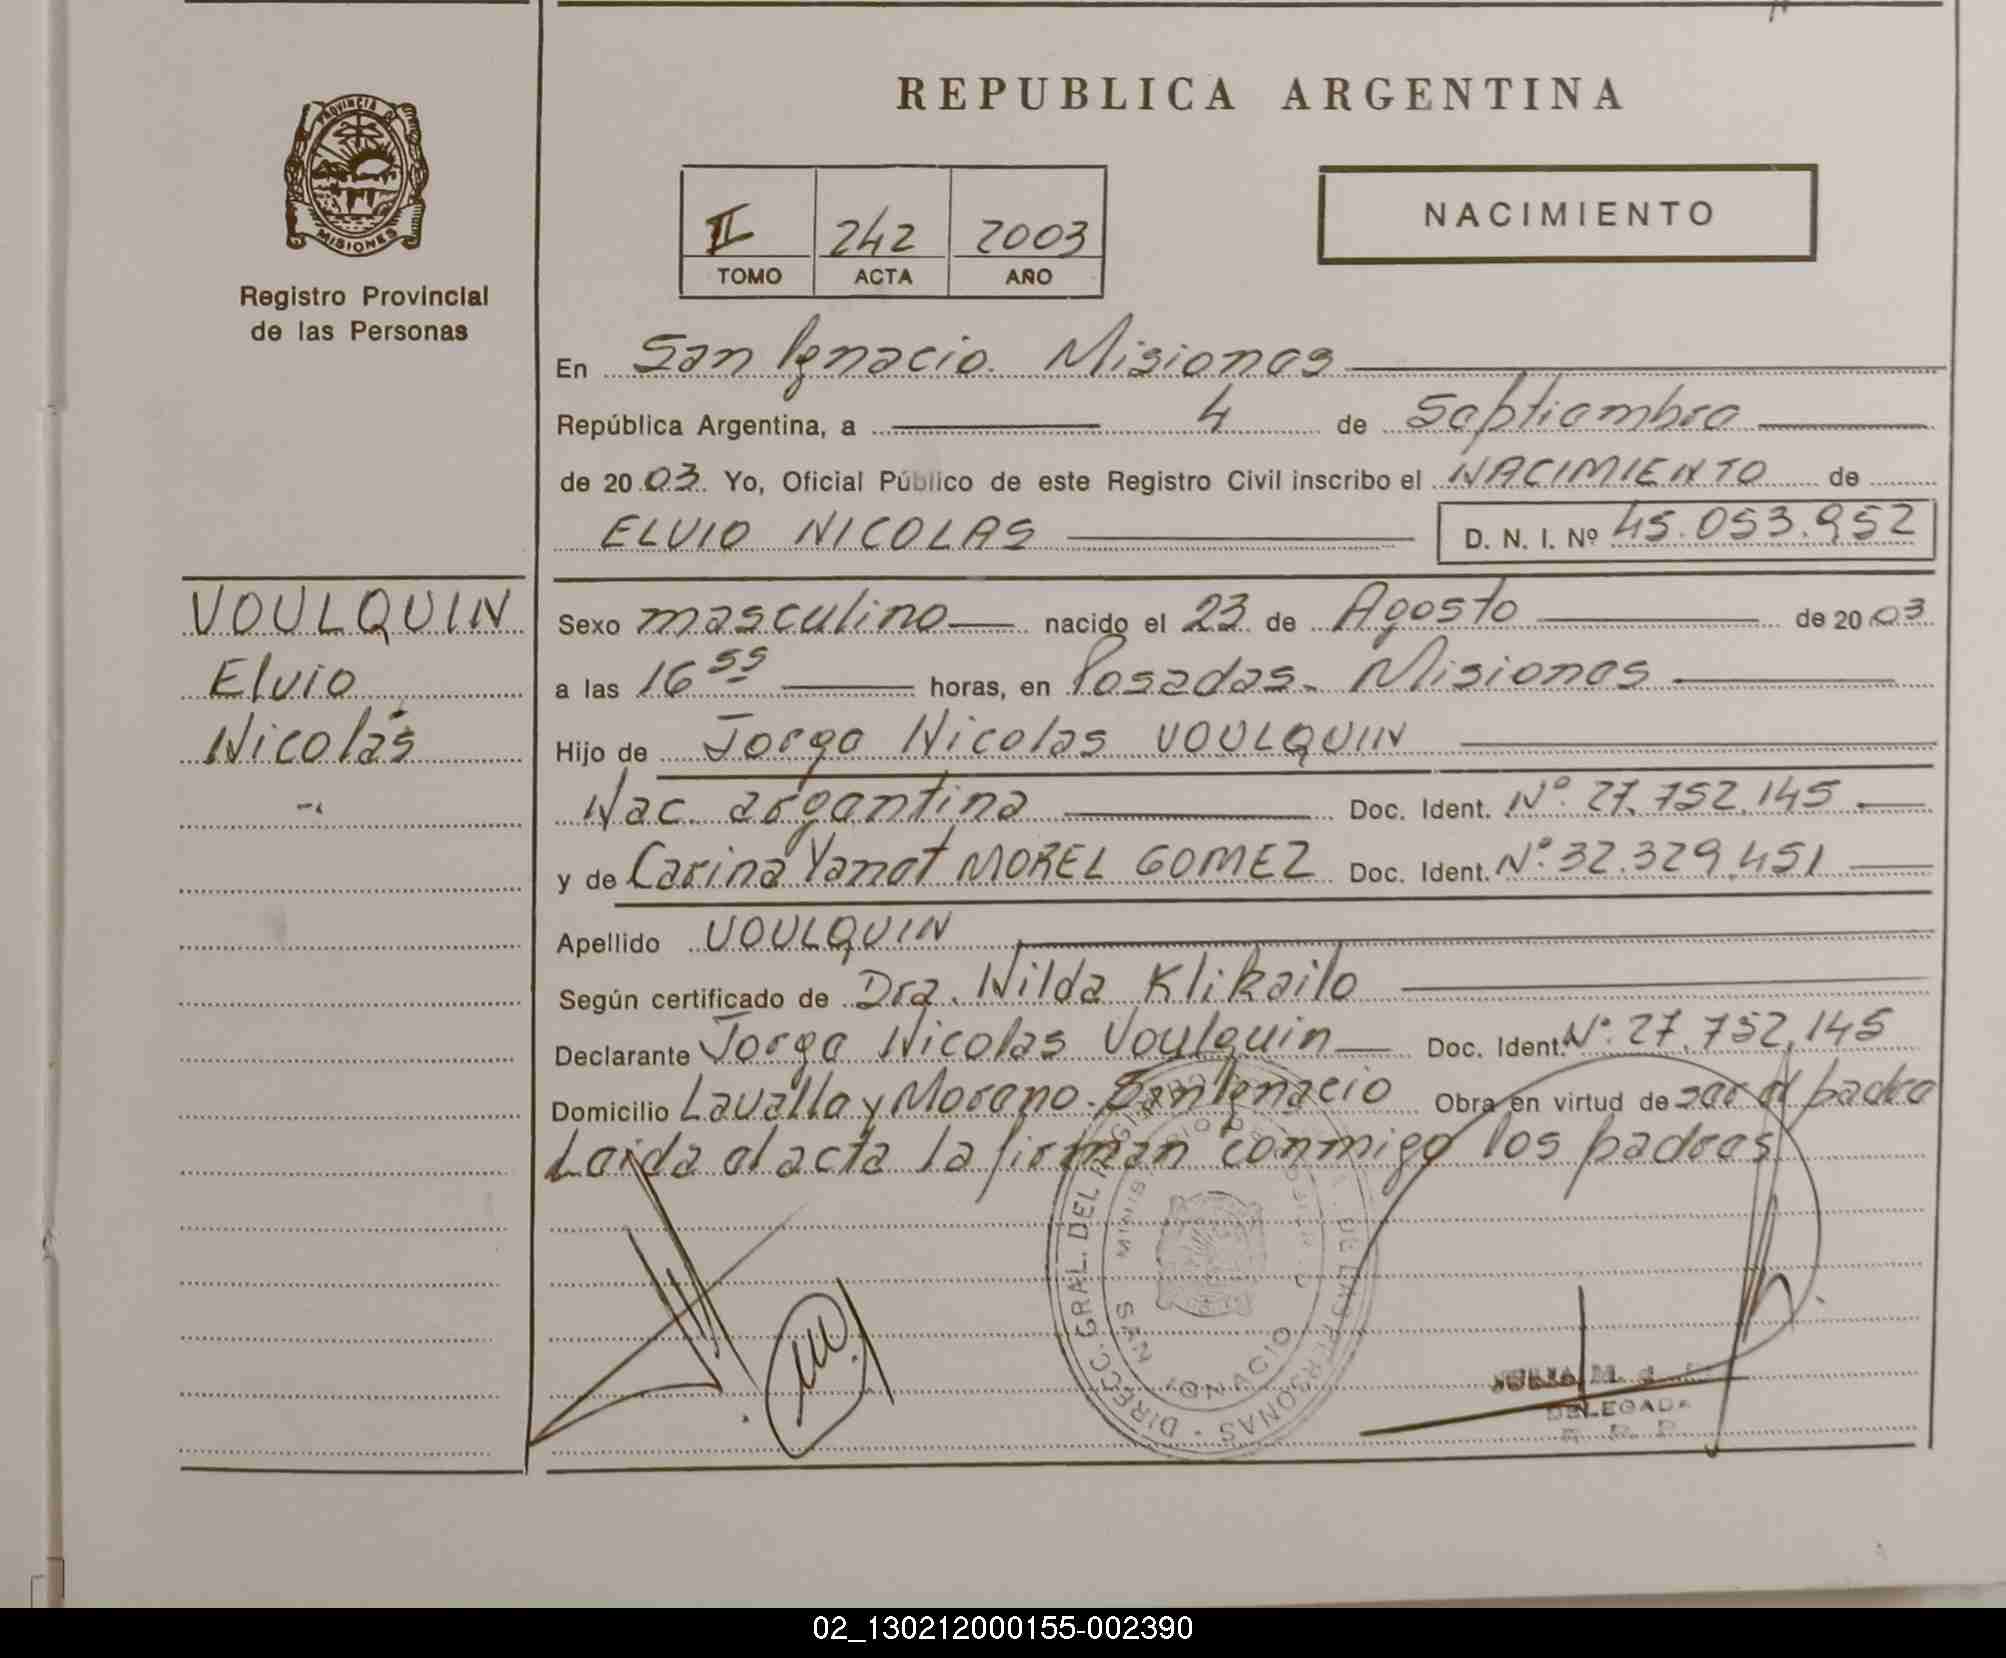 REPUBLICA ARGENTINA
PROVINCIA DE
MISIONES
Registro Provincial
de las Personas
II 242 2003
TOMO ACTA AÑO
NACIMIENTO
En San Ignacio. Misiones
República Argentina, a 4 de Septiembre
de 2003. Yo, Oficial Público de este Registro Civil inscribo el NACIMIENTO de
ELVIO NICOLAS D. N. I. Nº 45.053.952
VOULQUIN
Elvio
Nicolás
Sexo masculino nacido el 23 de Agosto de 2003
a las 16 55 horas, en Posadas. Misiones
Hijo de Jorge Nicolas VOULQUIN
Nac. argentina Doc. Ident. Nº 27.752.145
y de Carina Yanet MOREL GOMEZ Doc. Ident. Nº 32.329.451
Apellido VOULQUIN
Según certificado de Dra. Nilda Klikailo
Declarante Jorge Nicolas Voulquin Doc. Ident. Nº 27.752.145
Domicilio Lavalle y Moreno. San Ignacio Obra en virtud de ser el padre
Leida el acta la firman conmigo los padres
DIRECC. GRAL. DEL REGISTRO DE LAS PERSONAS
SAN IGNACIO
JULIA M.
DELEGADA
R. P. P.
02_130212000155-002390